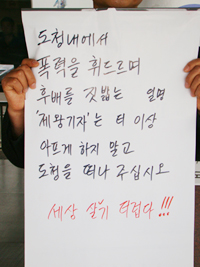 도청내에서
폭력을 휘두르며
후배를 짓밟는 일명
'제왕기자'는 더 이상
아프게 하지 말고
도청을 떠나 주십시오
세상 살기 더럽다!!!